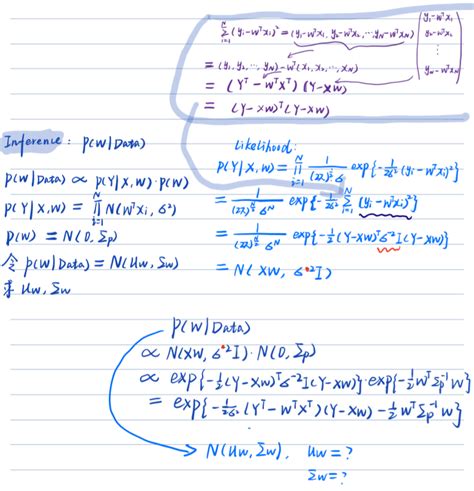 N
Σ (yᵢ-wᵀxᵢ)² = (y₁-wᵀx₁, y₂-wᵀx₂, ..., y_N-wᵀx_N) (y₁-wᵀx₁
i=1
y₂-wᵀx₂
⋮
y_N-wᵀx_N)
= (y₁, y₂, ..., y_N) - wᵀ(x₁, x₂, ..., x_N)
= (Yᵀ - wᵀXᵀ) (Y-Xw)
= (Y-Xw)ᵀ(Y-Xw)
Inference: p(w|Data)
p(w|Data) ∝ p(Y|X,w)·p(w)
p(Y|X,w) = ∏ᵢ₌₁ᴺ N(wᵀxᵢ, σ²)
p(w) = N(0, Σp)
令 p(w|Data) = N(μw, Σw)
求 μw, Σw
Likelihood:
p(Y|X,w) = ∏ᵢ₌₁ᴺ 1/((2π)^½ σ) exp{-1/(2σ²) (yᵢ-wᵀxᵢ)²}
= 1/((2π)^(N/2) σᴺ) exp{-1/(2σ²) Σᵢ₌₁ᴺ (yᵢ-wᵀxᵢ)²}
= 1/((2π)^(N/2) σᴺ) exp{-½(Y-Xw)ᵀσ⁻²I(Y-Xw)}
= N(Xw, σ²I)
p(w|Data)
∝ N(Xw, σ²I)·N(0, Σp)
∝ exp{-½(Y-Xw)ᵀσ⁻²I(Y-Xw)}·exp{-½wᵀΣp⁻¹w}
= exp{-1/(2σ²)(Yᵀ-wᵀXᵀ)(Y-Xw) - ½wᵀΣp⁻¹w}
N(μw, Σw), μw = ?
Σw = ?